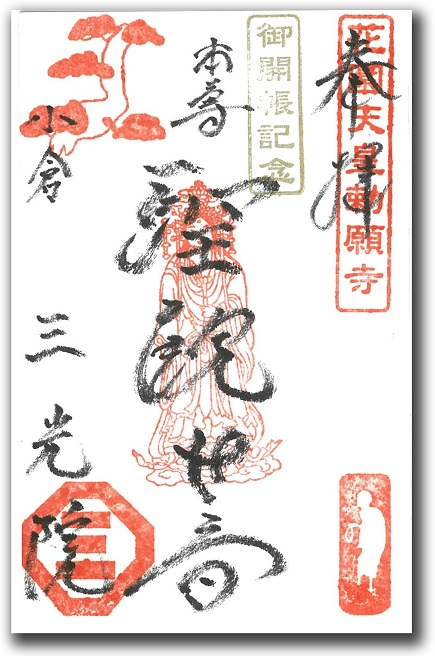 奉拝
天皇勅願寺
御開帳記念
本尊
聖観世音
小倉
三光院